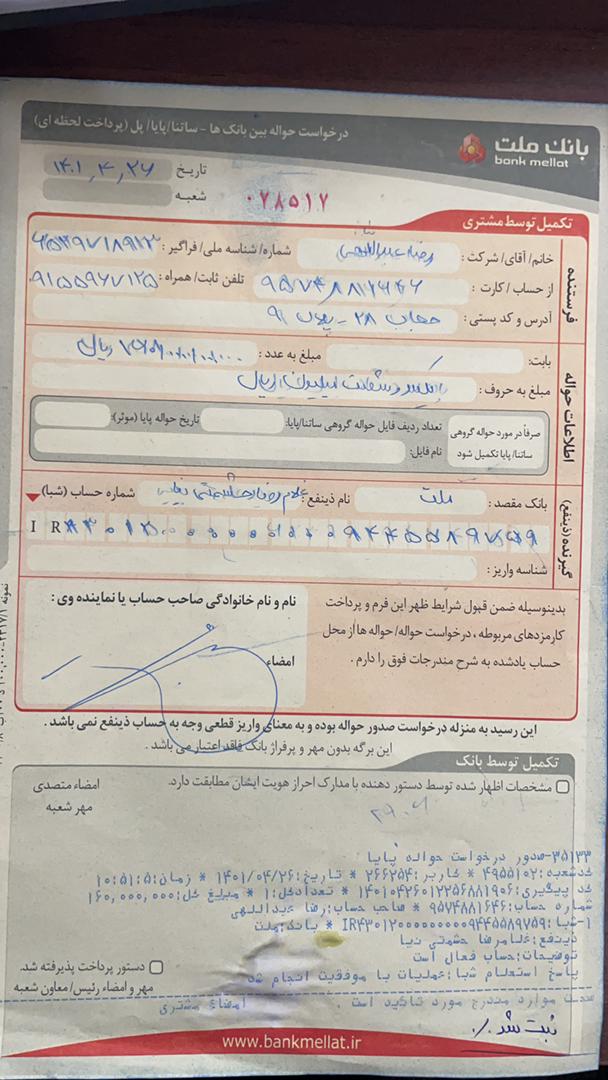 درخواست حواله بین بانک ها - ساتنا/پایا/ پل (پرداخت لحظه ای)
بانک ملت
bank mellat
تاریخ ۱۴۰۱,۴,۲۶
شعبه
۰۷۸۵۱۷
تکمیل توسط مشتری
فرستنده
خانم/ آقای/ شرکت: رضا عبداللهی شماره/ شناسه ملی/ فراگیر:
از حساب / کارت: ۹۵۷۴۸۸۱۶۴۶ تلفن ثابت/ همراه: ۹۱۵۵۹۶۷۱۲۵
آدرس و کد پستی:
اطلاعات حواله
بابت: مبلغ به عدد: ریال
مبلغ به حروف: یکصد و شصت میلیون ریال
صرفاً در مورد حواله گروهی ساتنا/ پایا تکمیل شود
تعداد ردیف فایل حواله گروهی ساتنا/پایا: تاریخ حواله پایا (موثر):
نام فایل:
گیرنده (ذینفع)
بانک مقصد: ملت نام ذینفع: غلامرضا حشمتی نیا شماره حساب (شبا)
IR ۴۳۰۱۲۰۰۰۰۰۰۰۰۰۹۴۴۵۵۸۹۷۵۹
شناسه واریز:
بدینوسیله ضمن قبول شرایط ظهر این فرم و پرداخت
کارمزدهای مربوطه، درخواست حواله/ حواله ها از محل
حساب یادشده به شرح مندرجات فوق را دارم.
نام و نام خانوادگی صاحب حساب یا نماینده وی:
امضاء
این رسید به منزله درخواست صدور حواله بوده و به معنای واریز قطعی وجه به حساب ذینفع نمی باشد.
این برگه بدون مهر و پرفراژ بانک فاقد اعتبار می باشد.
تکمیل توسط بانک
مشخصات اظهار شده توسط دستور دهنده با مدارک احراز هویت ایشان مطابقت دارد.
امضاء متصدی
مهر شعبه
۳۵۱۳۳-صدور درخواست حواله پایا
کدشعبه:۴۹۵۵۱۰۲ * کاربر:۲۶۶۲۵۴ * تاریخ:۱۴۰۱/۰۴/۲۶ * زمان:۱۰:۵۱:۰۵
کد پیگیری:۱۴۰۱۰۴۲۶۰۱۲۲۵۶۸۸۱۹۰۶ * تعدادکل:۱ * مبلغ کل:۱۶۰,۰۰۰,۰۰۰
شماره حساب:۹۵۷۴۸۸۱۶۴۶ * صاحب حساب:رضا عبداللهی
۱-شبا:IR۴۳۰۱۲۰۰۰۰۰۰۰۰۰۹۴۴۵۵۸۹۷۵۹ * بانک:ملت
ذینفع:غلامرضا حشمتی نیا
توضیحات:حساب فعال است
پاسخ استعلام شبا:عملیات با موفقیت انجام شد
صحت موارد مندرج مورد تائید است . امضای مشتری
دستور پرداخت پذیرفته شد.
مهر و امضاء رئیس/ معاون شعبه
ثبت شد
www.bankmellat.ir